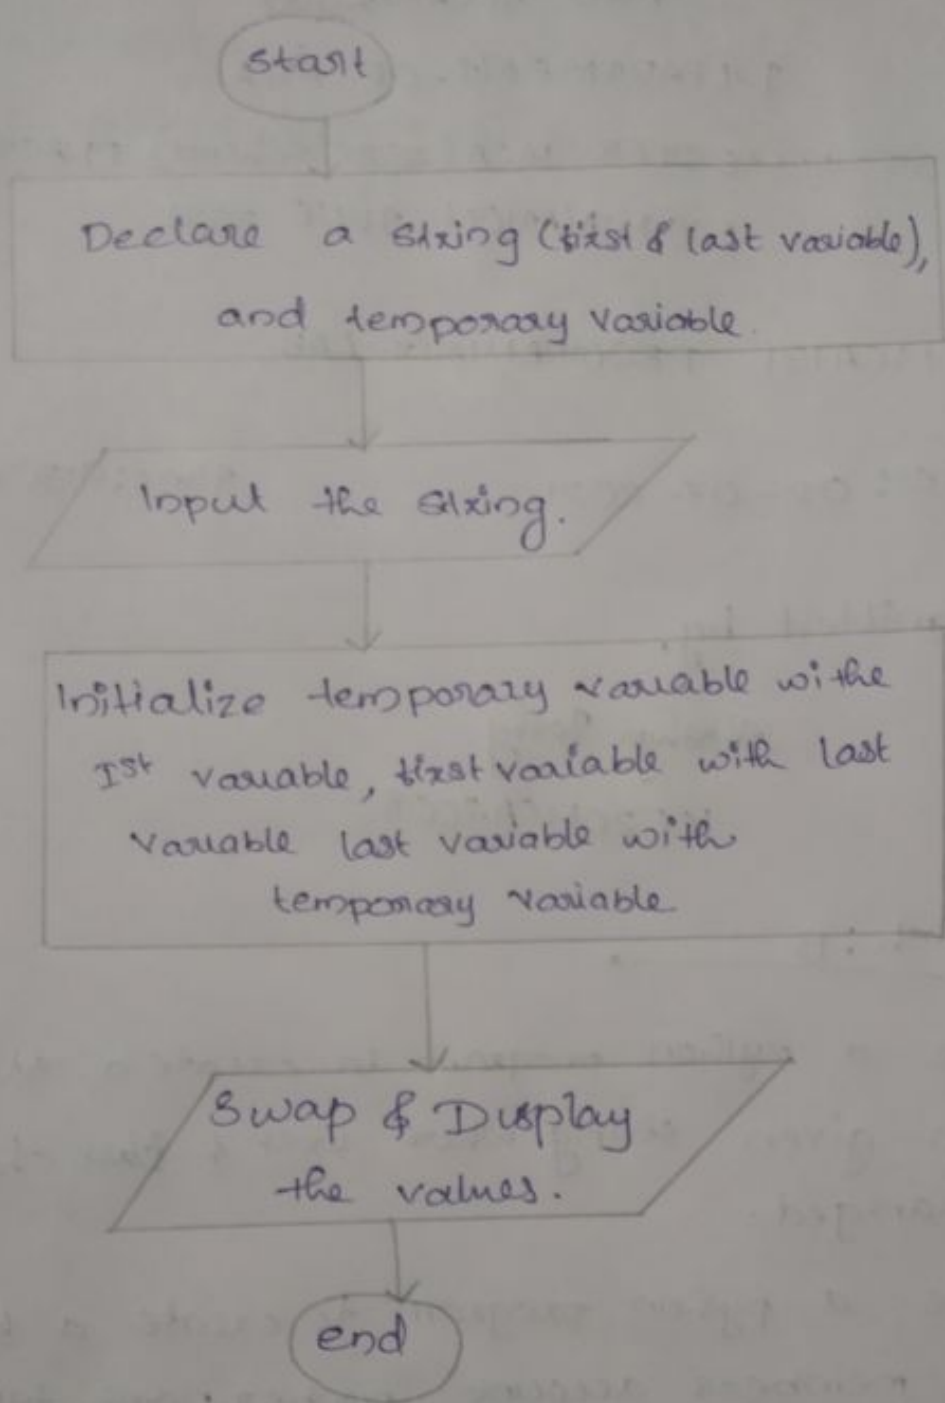 start
Declare a string (first & last variable),
and temporary variable.
Input the string.
Initialize temporary variable withe
Ist variable, first vaaiable with last
variable last variable with
temporary variable
Swap & Display
the values.
end